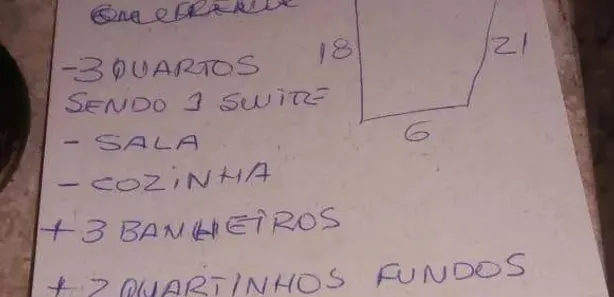 - 3 QUARTOS
SENDO 1 SWITE
- SALA
- COZINHA
+ 3 BANHEIROS
+ 2 QUARTINHOS FUNDOS
18
21
6